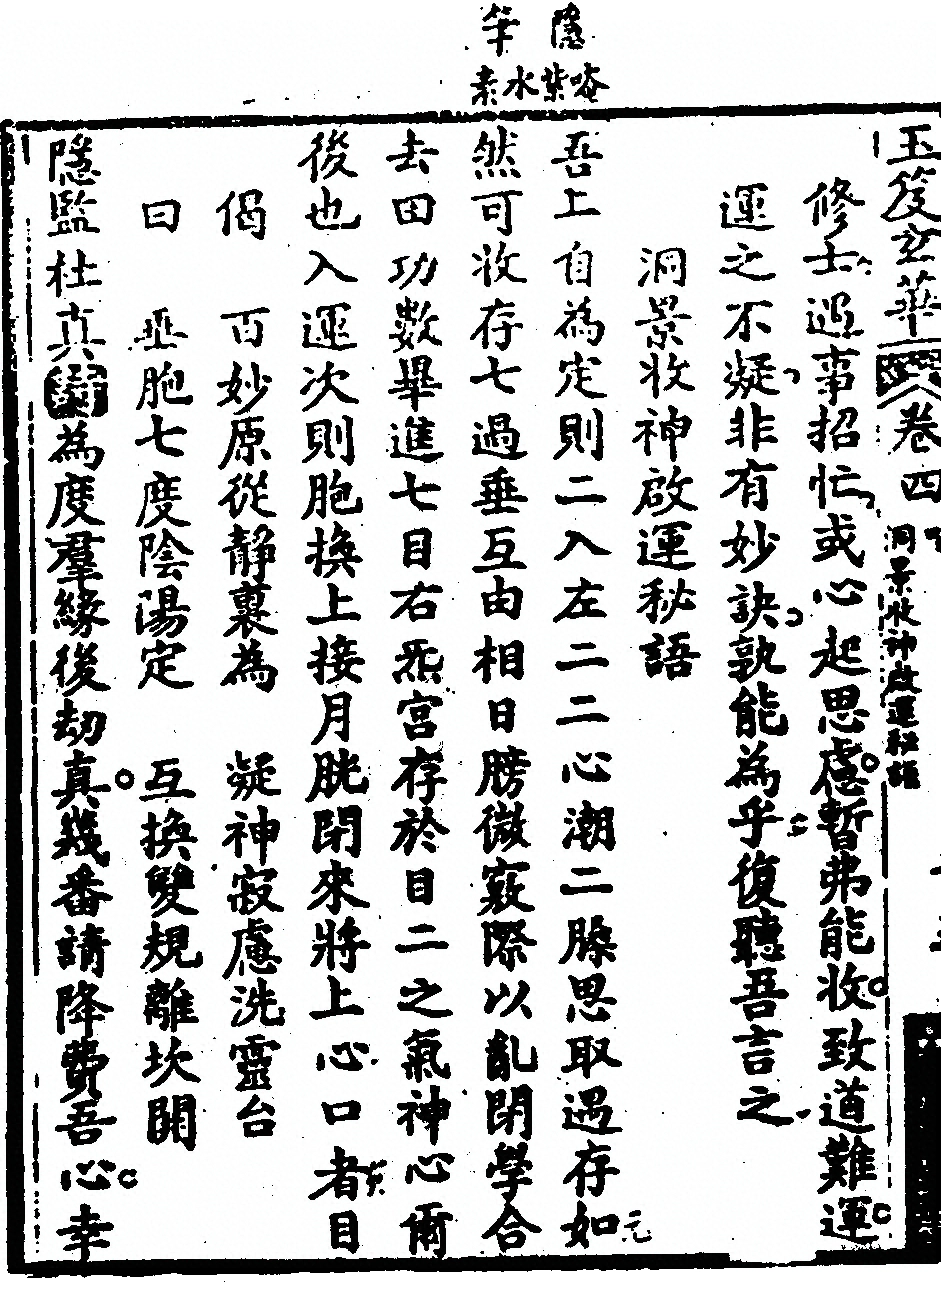 隱
筆
唵紫水素
玉笈玄華
卷四
洞景收神啟運秘語
修士遇事招忙或心起思慮暫弗能收致道難運
運之不凝非有妙訣孰能為乎復聽吾言之
洞景收神啟運秘語
吾上自為定則二入左二二心潮二臊思取過存如
然可收存七過垂互由相日膀微竅際以亂閉學合
去田功數畢進七目右炁宮存於目二之氣神心爾
後也入運次則胞換上接月胱閉來將上心口者目
偈 百妙原從靜裏為 凝神寂慮洗靈台
曰 垂胞七度陰陽定 互換雙規離坎開
隱監杜真 為度羣緣後劫真幾番請降費吾心幸